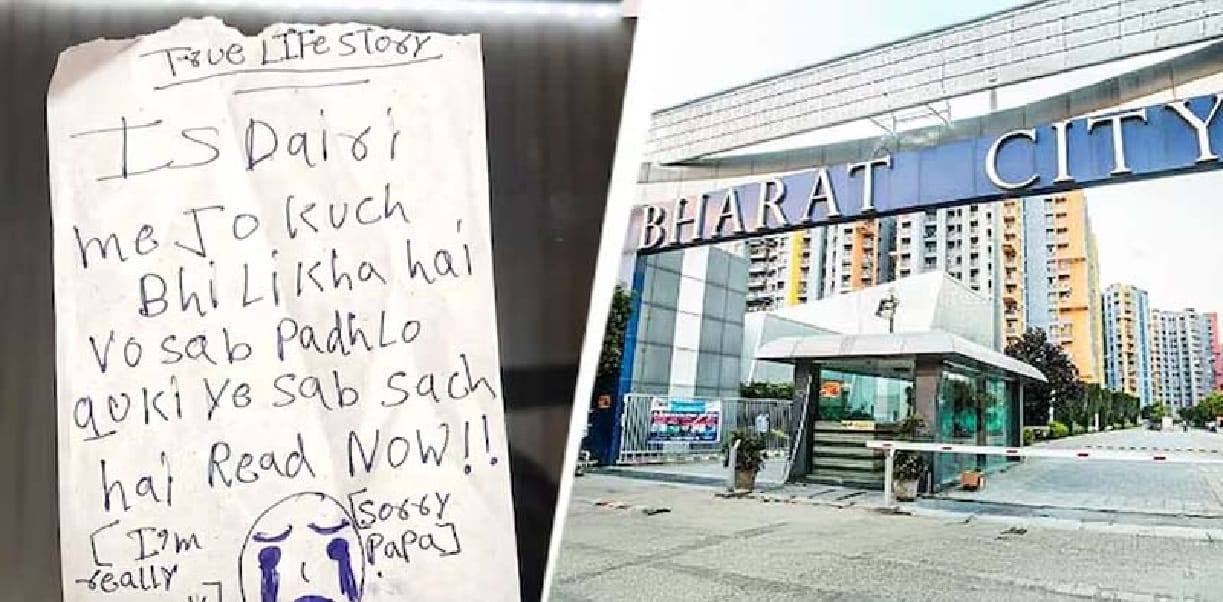 True Life Story
Is Dairi
me Jo kuch
Bhi Likha hai
Vo sab padhLo
quki ye sab sach
hai Read NOW!!
[I'm
really
[sorry
papa]
BHARAT CITY